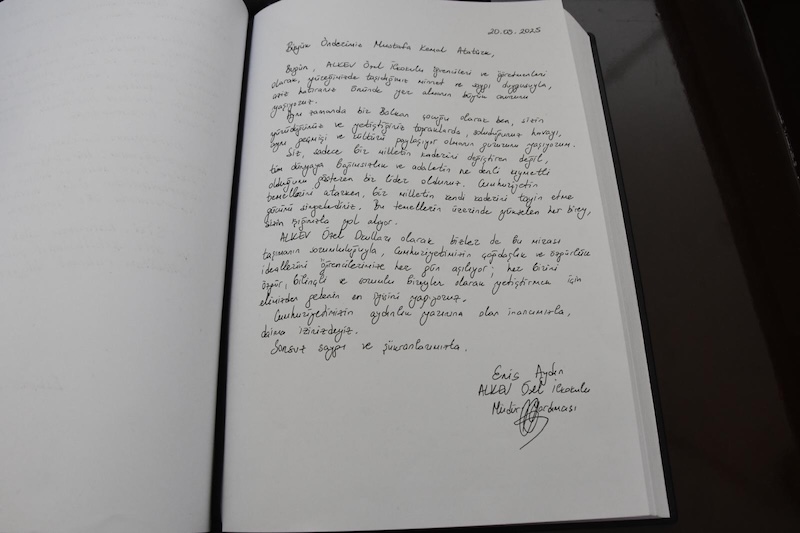 20.05.2025
Büyük Önderimiz Mustafa Kemal Atatürk,
Bugün, ALKEV Özel İlkokulu öğrencileri ve öğretmenleri
olarak, yüreğimizde taşıdığımız minnet ve saygı duygusuyla,
aziz hatıranız önünde yer almanın büyük onurunu
yaşıyoruz.
Aynı zamanda bir Balkan çocuğu olarak ben, sizin
yürüdüğünüz ve yetiştiğiniz topraklarda, soluduğunuz havayı,
aynı geçmişi ve kültürü paylaşıyor olmanın gururunu yaşıyorum.
Siz, sadece bir milletin kaderini değiştiren değil,
tüm dünyaya bağımsızlık ve adaletin ne denli kıymetli
olduğunu gösteren bir lider oldunuz. Cumhuriyetin
temellerini atarken, bir milletin kendi kaderini tayin etme
gücünü simgelediniz. Bu temellerin üzerinde yükselen her birey,
sizin ışığınızla yol alıyor.
ALKEV Özel Okulları olarak bizler de bu mirası
taşımanın sorumluluğuyla, Cumhuriyetimizin çağdaşlık ve özgürlük
ideallerini öğrencilerimize her gün aşılıyor; her birini
özgür, bilinçli ve sorumlu bireyler olarak yetiştirmek için
elimizden gelenin en iyisini yapıyoruz.
Cumhuriyetimizin aydınlık yarınına olan inancımızla,
daima izinizdeyiz.
Sonsuz saygı ve şükranlarımızla.
Enis Aydın
ALKEV Özel İlkokulu
Müdür Yardımcısı